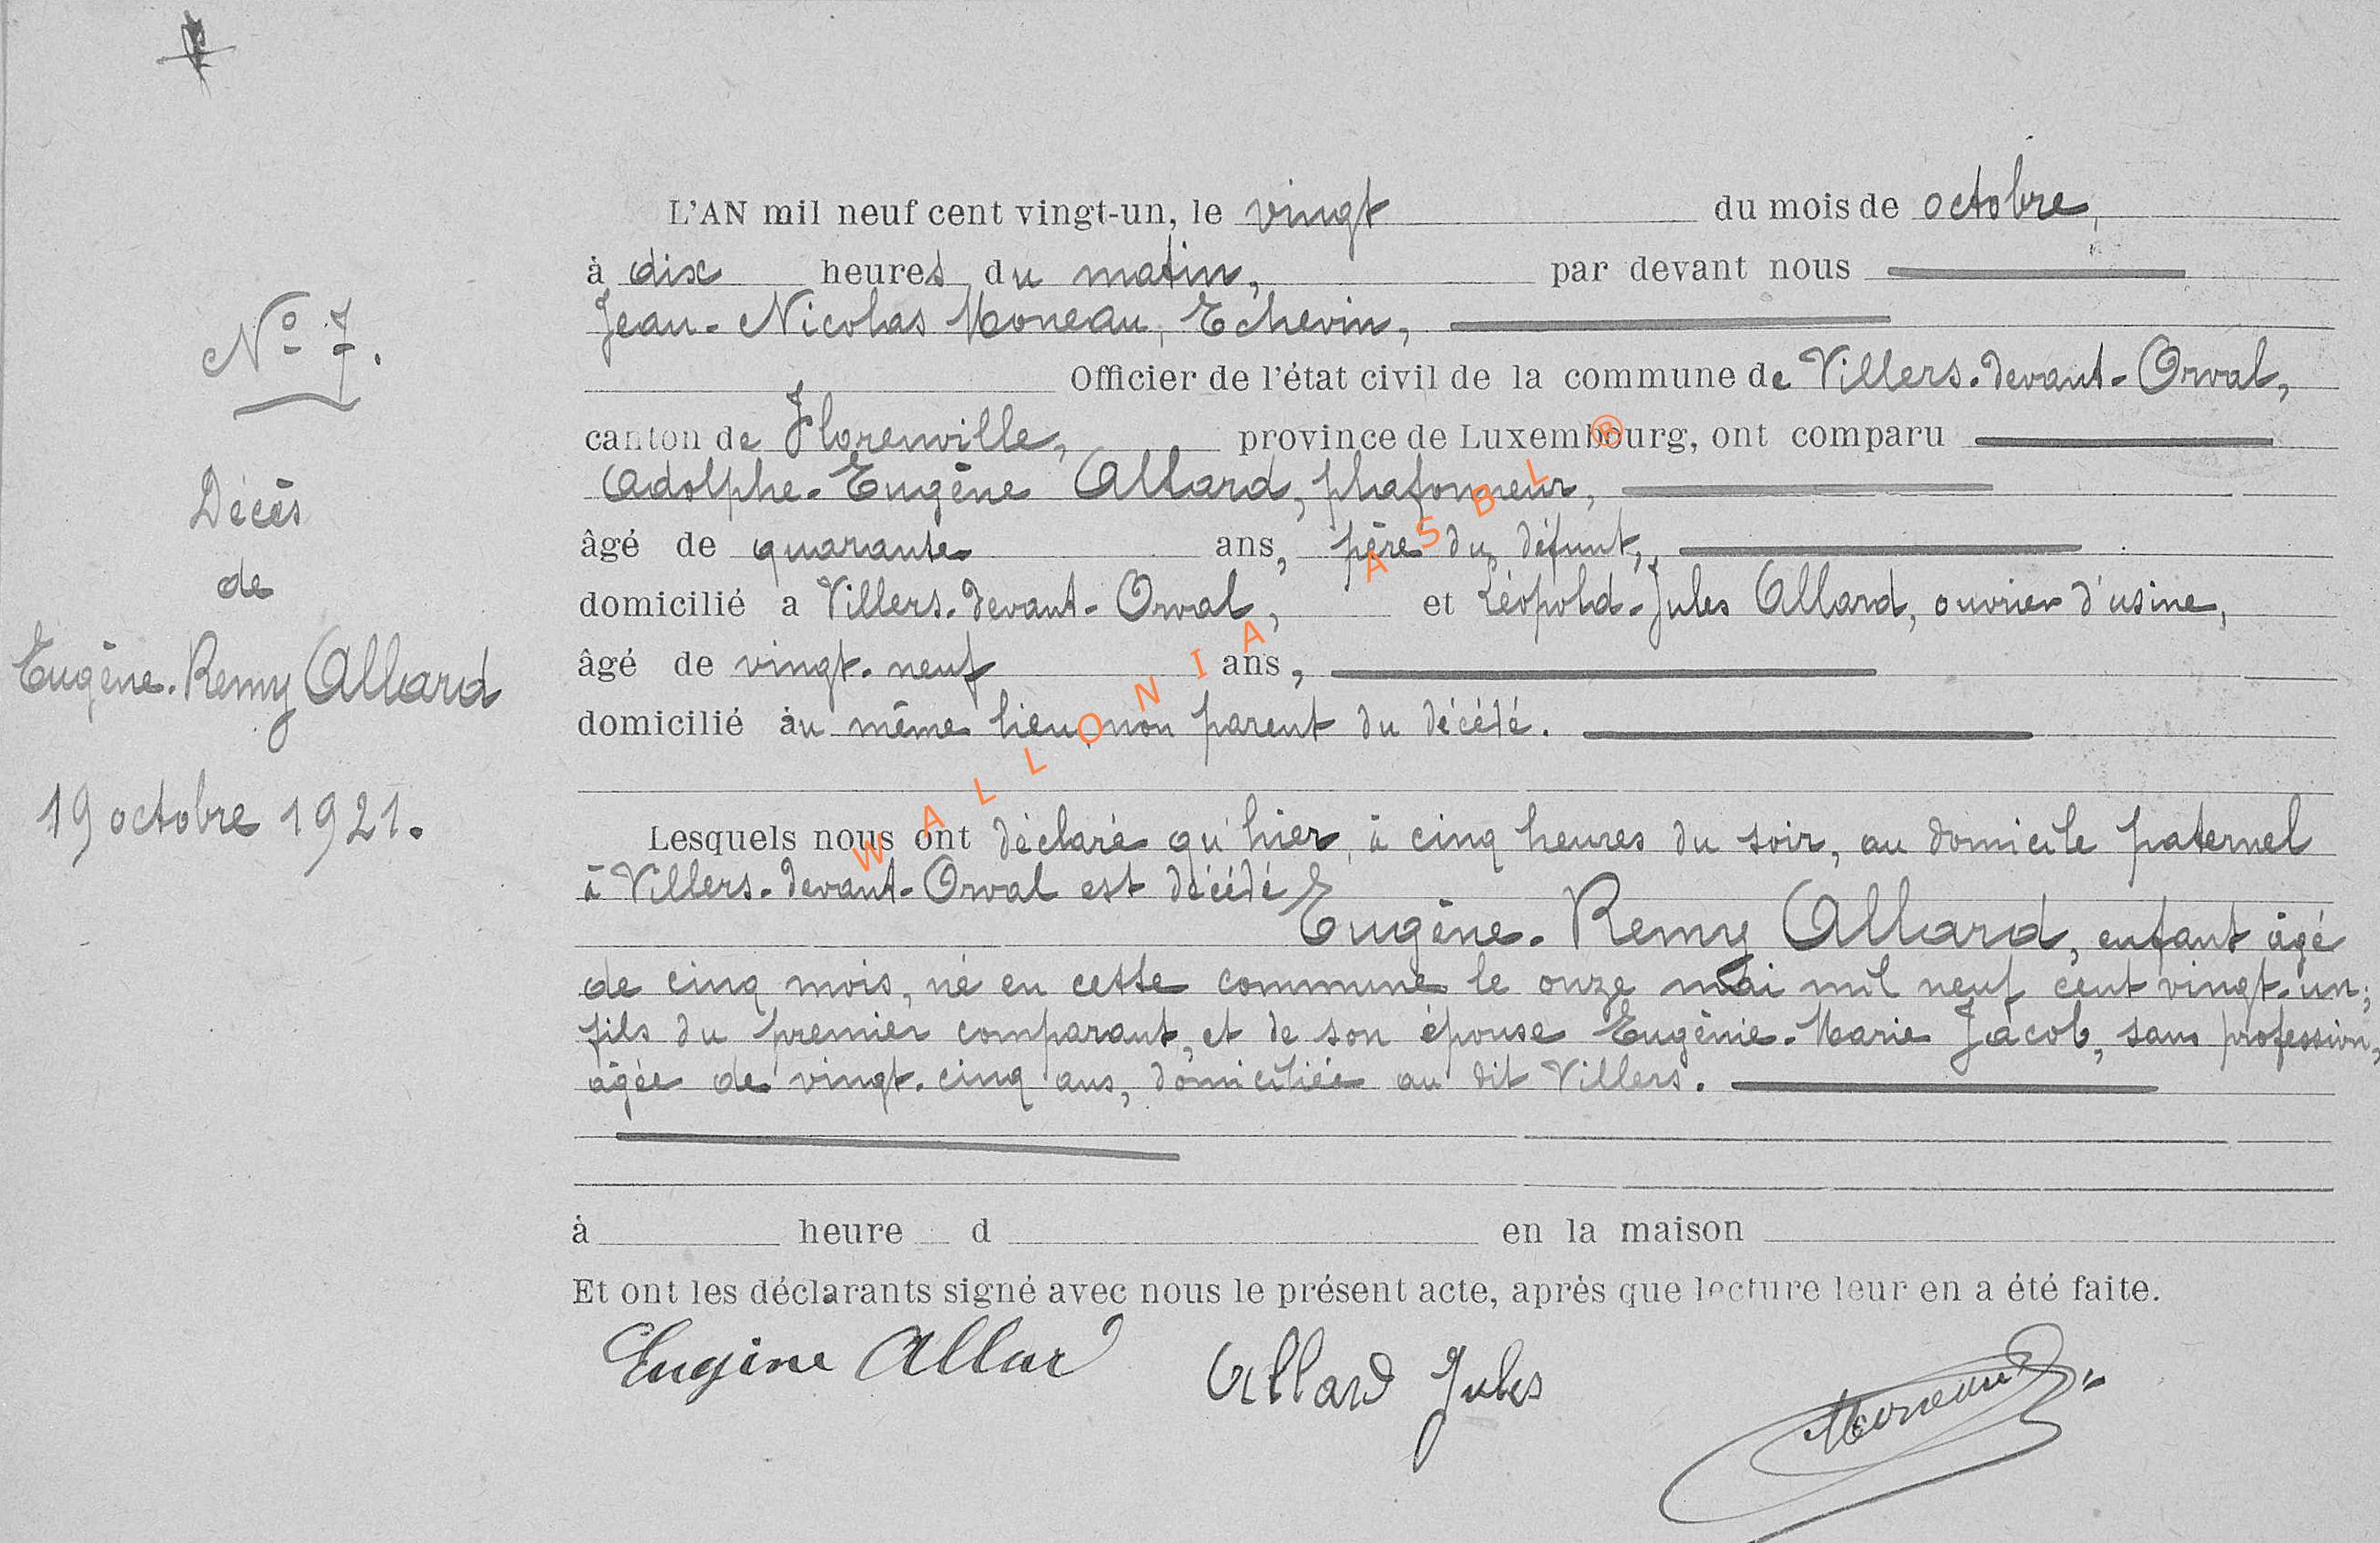 L'AN mil neuf cent vingt-un, le vingt du mois de octobre,
à dix heures du matin, par devant nous
Jean-Nicolas Moneau, Echevin,
Officier de l'état civil de la commune de Villers-devant-Orval,
canton de Florenville, province de Luxembourg, ont comparu
Adolphe-Eugène Allard, plafonneur,
âgé de quarante ans, père du défunt,
domicilié a Villers-devant-Orval, et Léopold-Jules Allard, ouvrier d'usine,
âgé de vingt-neuf ans,
domicilié au même lieu, non parent du décédé.
Lesquels nous ont déclaré qu'hier, à cinq heures du soir, au domicile paternel
à Villers-devant-Orval est décédé
Eugène-Remy Allard, enfant âgé
de cinq mois, né en cette commune le onze mai mil neuf cent vingt-un;
fils du premier comparant, et de son épouse Eugénie-Marie Jacob, sans profession,
âgée de vingt-cinq ans, domiciliée au dit Villers.
à heure d en la maison
Et ont les déclarants signé avec nous le présent acte, après que lecture leur en a été faite.
Eugène Allard Allard Jules Moneau
N° 7.
Décès
de
Eugène-Remy Allard
19 octobre 1921.
WALLONIA ASBL ®